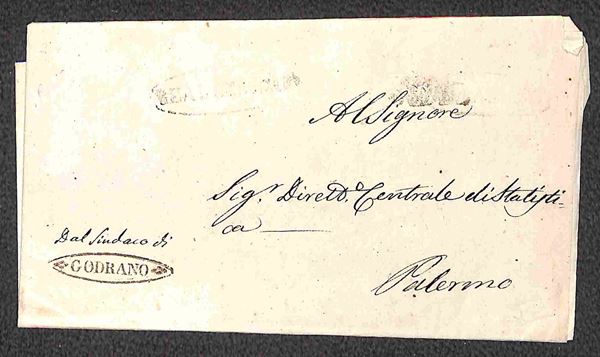 Al Signore
Sig.r Dirett.e Centrale di Statisti-
ca
Palermo
Dal Sindaco di
GODRANO